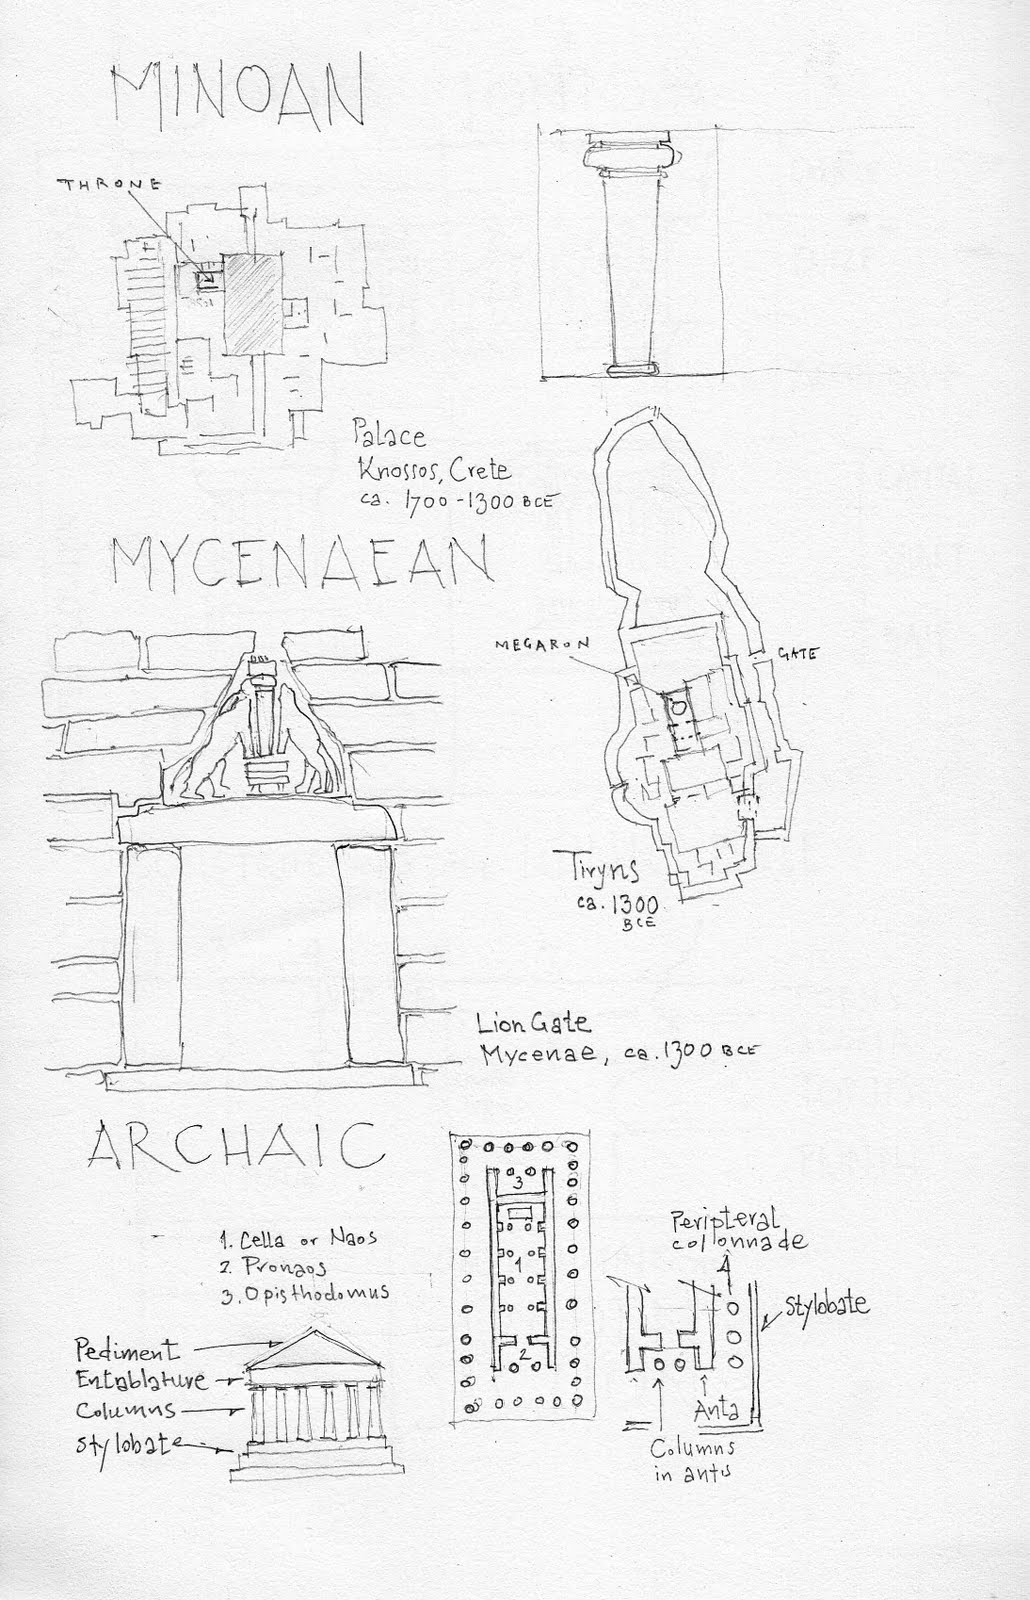 MINOAN
THRONE
Palace
Knossos, Crete
ca. 1700-1300 BCE
MYCENAEAN
MEGARON
GATE
Tiryns
ca. 1300
BCE
Lion Gate
Mycenae, ca. 1300 BCE
ARCHAIC
1. Cella or Naos
2. Pronaos
3. Opisthodomus
Pediment
Entablature
Columns
Stylobate
3
1
2
Peripteral
collonnade
Stylobate
Anta
Columns
in antis